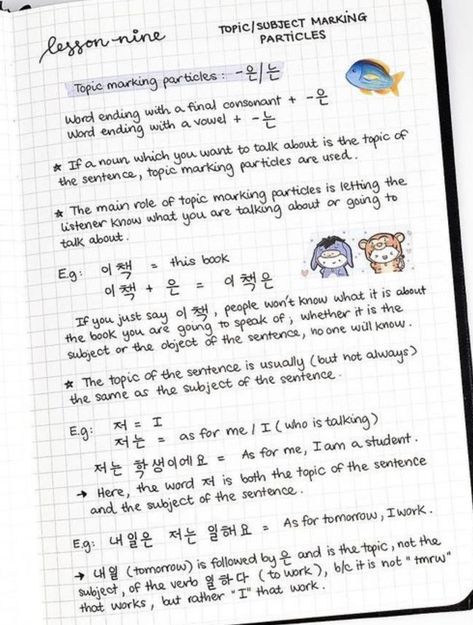 lesson nine
TOPIC/SUBJECT MARKING
PARTICLES
Topic marking particles : -은/는
Word ending with a final consonant + -은
Word ending with a vowel + -는
★ If a noun which you want to talk about is the topic of
the sentence, topic marking particles are used.
★ The main role of topic marking particles is letting the
listener know what you are talking about or going to
talk about.
E.g: 이 책 = this book
이 책 + 은 = 이 책은
If you just say 이 책, people won't know what it is about
the book you are going to speak of; whether it is the
subject or the object of the sentence, no one will know.
★ The topic of the sentence is usually (but not always)
the same as the subject of the sentence.
E.g: 저 = I
저는 = as for me / I (who is talking)
저는 학생이에요 = As for me, I am a student.
→ Here, the word 저 is both the topic of the sentence
and the subject of the sentence.
E.g: 내일은 저는 일해요 = As for tomorrow, I work.
→ 내일 (tomorrow) is followed by 은 and is the topic, not the
subject, of the verb 일하다 (to work), b/c it is not "tmrw"
that works, but rather "I" that work.